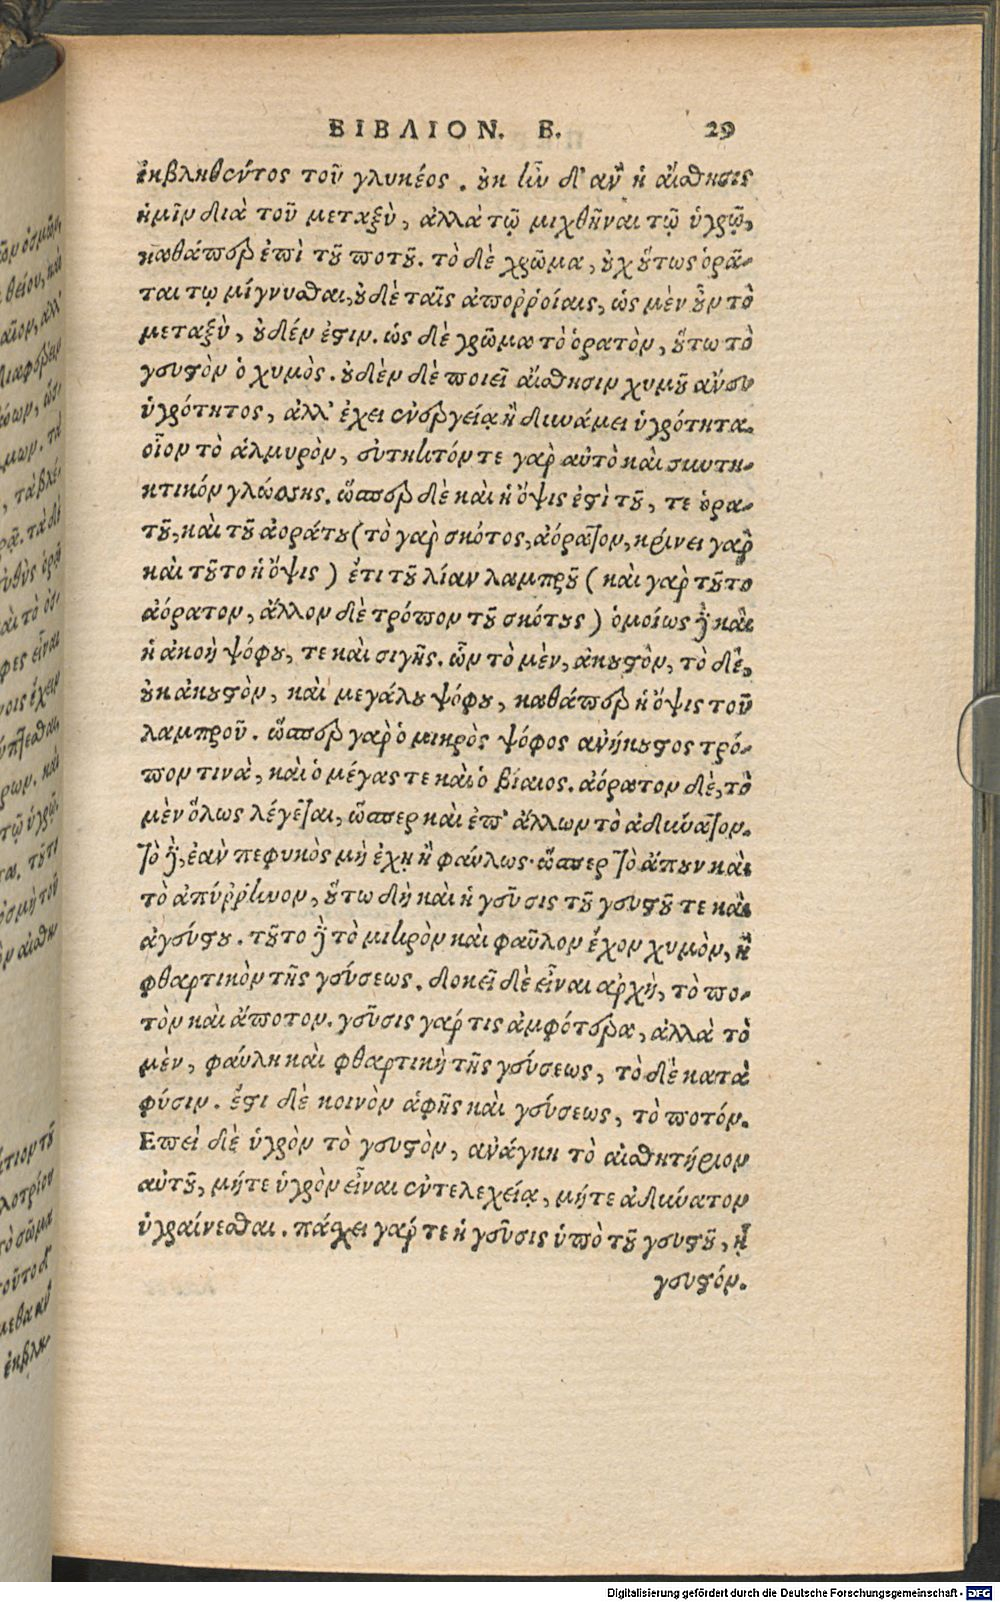 ΒΙΒΛΙΟΝ. Β. 29
ἐκβληθέντος τοῦ γλυκέος. οὐκ ἦν δ' ἂν ἡ αἴσθησις
ἡμῖν διὰ τοῦ μεταξὺ, ἀλλὰ τῷ μιχθῆναι τῷ ὑγρῷ,
καθάπερ ἐπὶ τοῦ ποτοῦ. τὸ δὲ χρῶμα, οὐχ οὕτως ὁρᾶ-
ται τῳ μίγνυσθαι, οὐδὲ ταῖς ἀποῤῥοίαις, ὡς μὲν οὖν τὸ
μεταξὺ, οὐδέν ἐστιν. ὡς δὲ χρῶμα τὸ ὁρατὸν, οὕτω τὸ
γευστὸν ὁ χυμὸς. οὐδὲν δὲ ποιεῖ αἴσθησιν χυμοῦ ἄνευ
ὑγρότητος, ἀλλ' ἔχει ἐνεργείᾳ ἢ δυνάμει ὑγρότητα.
οἷον τὸ ἁλμυρὸν, εὐτηκτόν τε γὰρ αὐτὸ καὶ συντη-
κτικόν γλώσσης. ὥσπερ δὲ καὶ ἡ ὄψις ἐστὶ τοῦ, τε ὁρα-
τοῦ, καὶ τοῦ ἀοράτου (τὸ γὰρ σκότος, ἀόρατον, κρίνει γὰρ
καὶ τοῦτο ἡ ὄψις) ἔτι τοῦ λίαν λαμπροῦ (καὶ γὰρ τοῦτο
ἀόρατον, ἄλλον δὲ τρόπον τοῦ σκότους) ὁμοίως δὲ καὶ
ἡ ἀκοὴ ψόφου, τε καὶ σιγῆς. ὧν τὸ μὲν, ἀκουστὸν, τὸ δὲ,
οὐκ ἀκουστὸν, καὶ μεγάλου ψόφου, καθάπερ ἡ ὄψις τοῦ
λαμπροῦ. ὥσπερ γὰρ ὁ μικρὸς ψόφος ἀνήκουστος τρό-
πον τινὰ, καὶ ὁ μέγας τε καὶ ὁ βίαιος. ἀόρατον δὲ, τὸ
μὲν ὅλως λέγεται, ὥσπερ καὶ ἐπ' ἄλλων τὸ ἀδύνατον.
τὸ δὲ, ἐὰν πεφυκὸς μὴ ἔχῃ ἢ φαύλως· ὥσπερ τὸ ἄπουν καὶ
τὸ ἀπύρῥηνον, οὕτω δὴ καὶ ἡ γεῦσις τοῦ γευστοῦ τε καὶ
ἀγεύστου. τοῦτο δὲ τὸ μικρὸν καὶ φαῦλον ἔχον χυμὸν, ἢ
φθαρτικὸν τῆς γεύσεως. δοκεῖ δὲ εἶναι ἀρχὴ, τὸ πο-
τὸν καὶ ἄποτον. γεῦσις γάρ τις ἀμφότερα, ἀλλὰ τὸ
μὲν, φαύλη καὶ φθαρτικὴ τῆς γεύσεως, τὸ δὲ κατὰ
φύσιν. ἔστι δὲ κοινὸν ἁφῆς καὶ γεύσεως, τὸ ποτόν.
Ἐπεὶ δὲ ὑγρὸν τὸ γευστὸν, ἀνάγκη τὸ αἰσθητήριον
αὐτοῦ, μήτε ὑγρὸν εἶναι ἐντελεχείᾳ, μήτε ἀδύνατον
ὑγραίνεσθαι. πάσχει γάρ τε ἡ γεῦσις ὑπὸ τοῦ γευστοῦ, ᾗ
γευστόν.
Digitalisierung gefördert durch die Deutsche Forschungsgemeinschaft - DFG